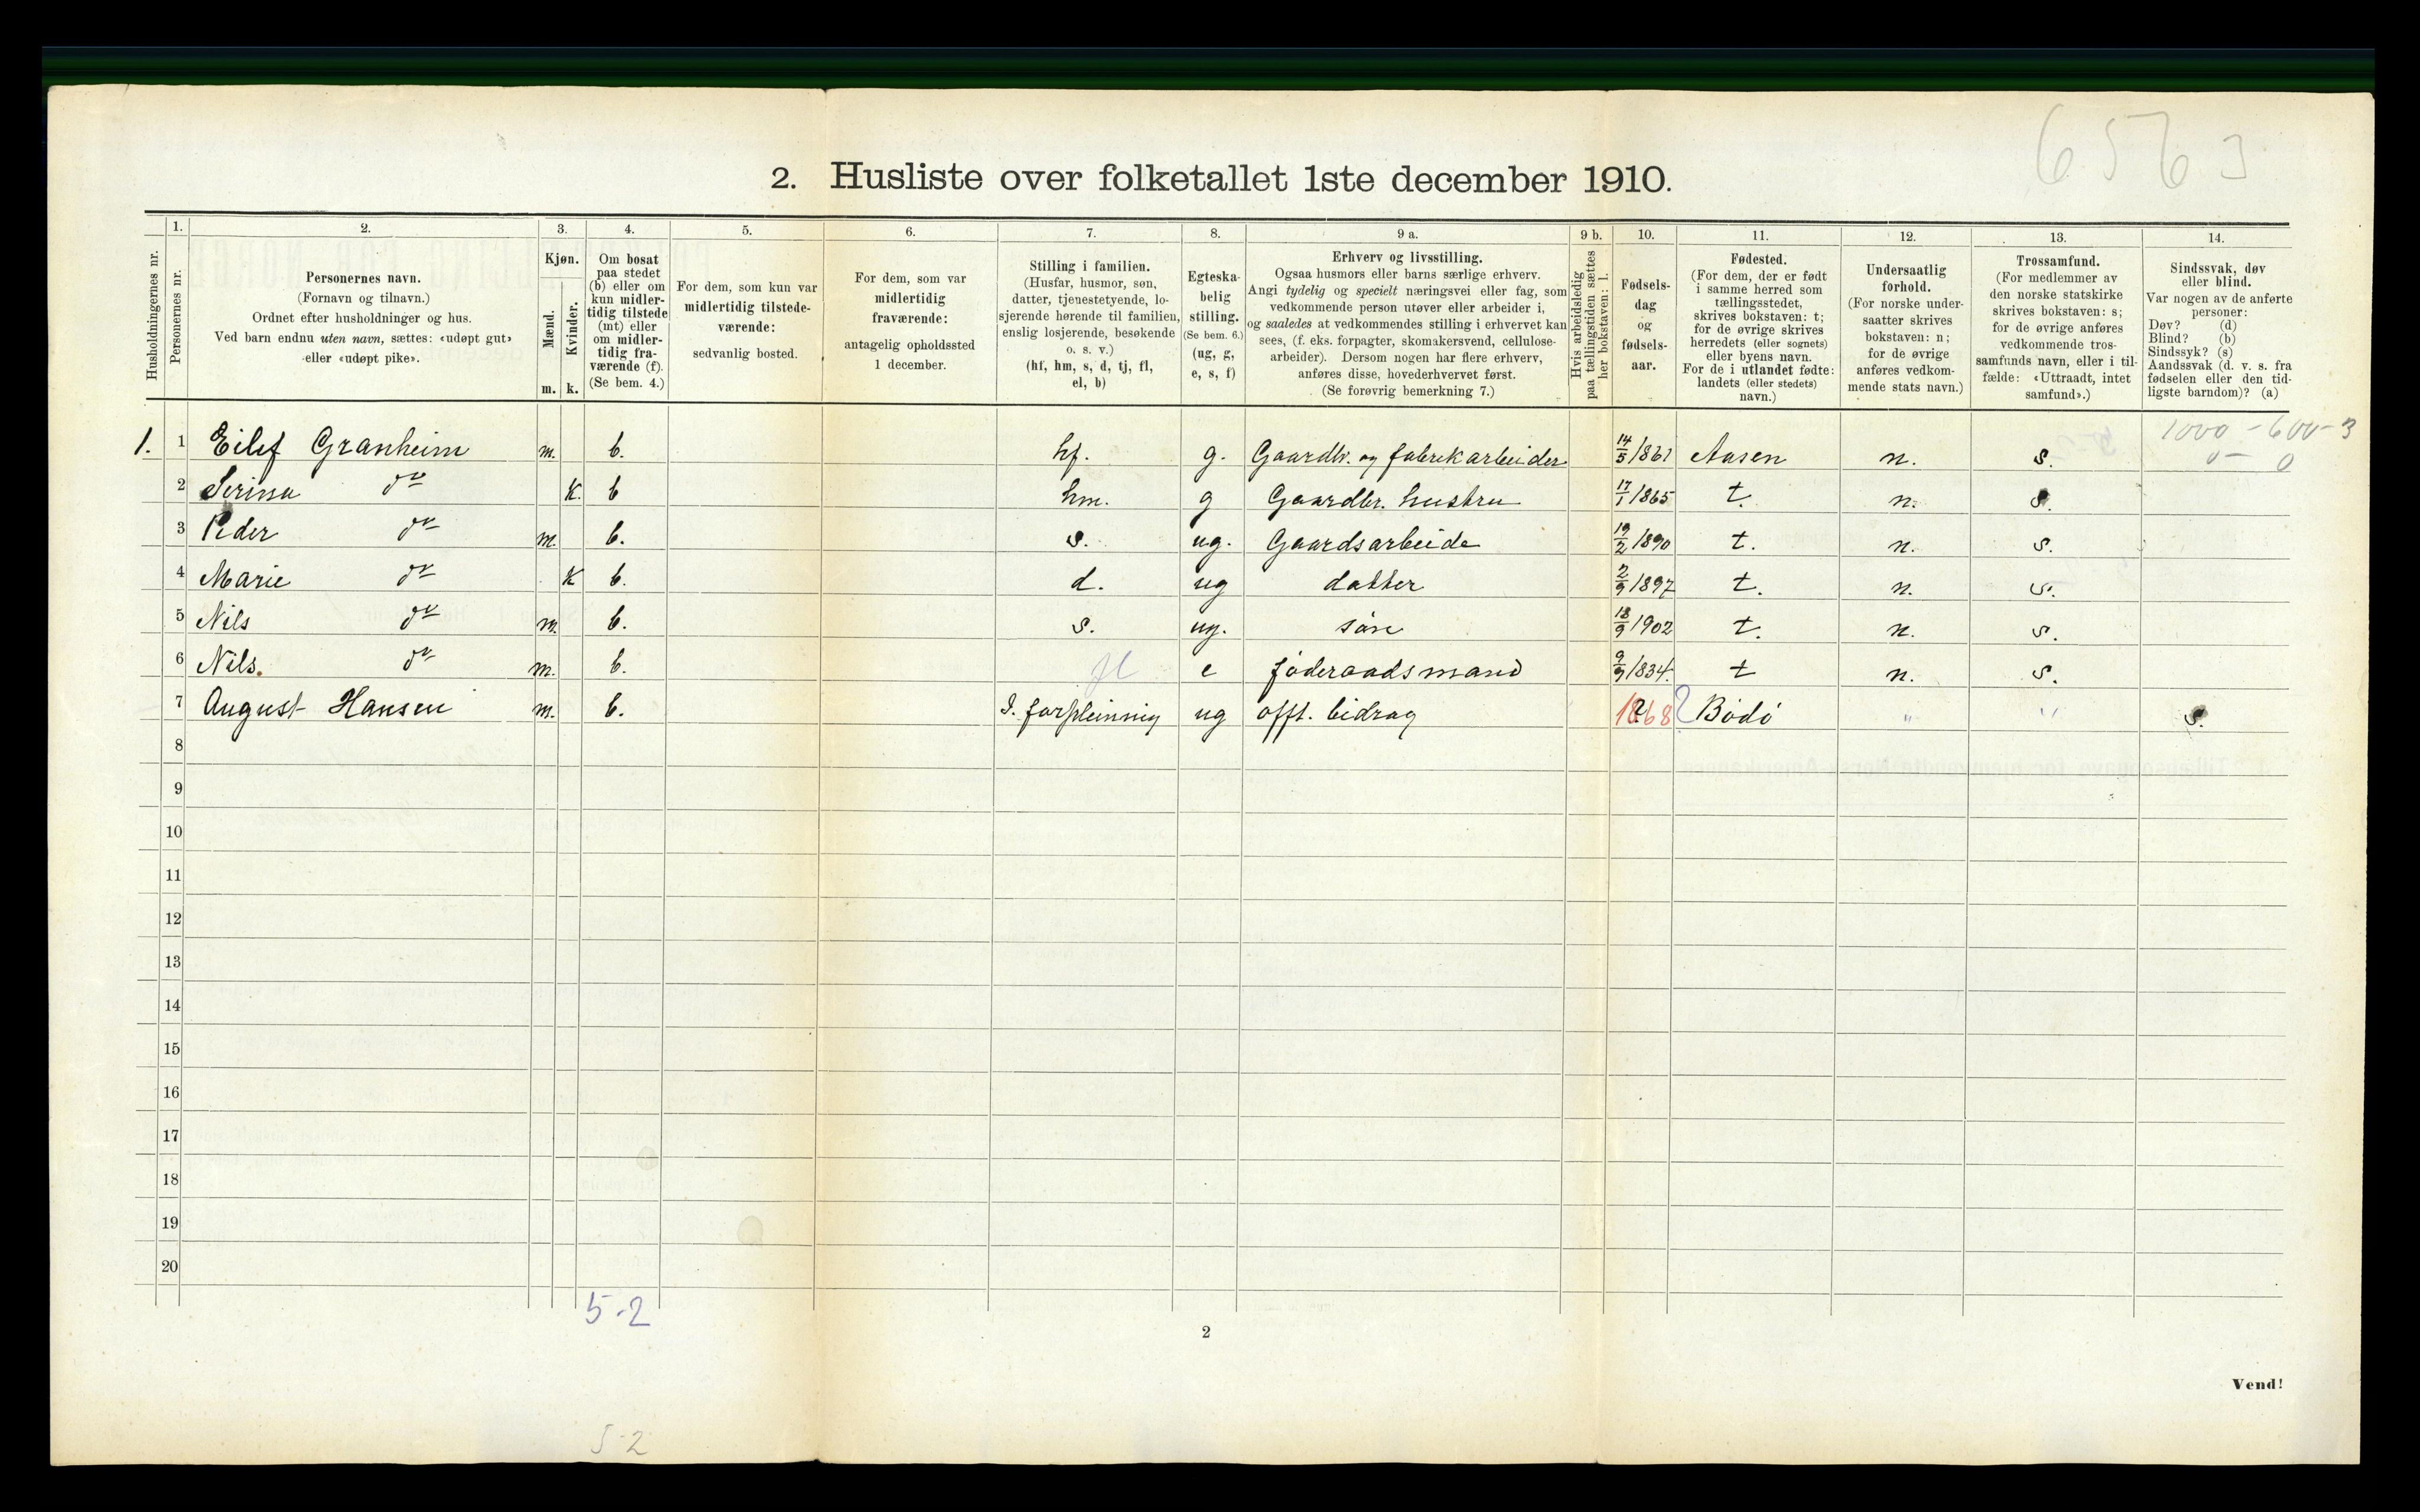 6563
2. Husliste over folketallet 1ste december 1910.
Husholdningernes nr.
1. Personernes nr.
2. Personernes navn.
(Fornavn og tilnavn.)
Ordnet efter husholdninger og hus.
Ved barn endnu uten navn, sættes: «udøpt gut»
eller «udøpt pike».
3. Kjøn.
Mænd. m.
Kvinder. k.
4. Om bosat
paa stedet
(b) eller om
kun midler-
tidig tilstede
(mt) eller
om midler-
tidig fra-
værende (f).
(Se bem. 4.)
5. For dem, som kun var
midlertidig tilstede-
værende:
sedvanlig bosted.
6. For dem, som var
midlertidig
fraværende:
antagelig opholdssted
1 december.
7. Stilling i familien.
(Husfar, husmor, søn,
datter, tjenestetyende, lo-
sjerende hørende til familien,
enslig losjerende, besøkende
o. s. v.)
(hf, hm, s, d, tj, fl,
el, b)
8. Egteska-
belig
stilling.
(Se bem. 6.)
(ug, g,
e, s, f)
9 a. Erhverv og livsstilling.
Ogsaa husmors eller barns særlige erhverv.
Angi tydelig og specielt næringsvei eller fag, som
vedkommende person utøver eller arbeider i,
og saaledes at vedkommendes stilling i erhvervet kan
sees, (f. eks. forpagter, skomakersvend, cellulose-
arbeider). Dersom nogen har flere erhverv,
anføres disse, hovederhvervet først.
(Se forøvrig bemerkning 7.)
9 b. Hvis arbeidsledig
paa tællingstiden sættes
her bokstaven: l.
10. Fødsels-
dag
og
fødsels-
aar.
11. Fødested.
(For dem, der er født
i samme herred som
tællingsstedet,
skrives bokstaven: t;
for de øvrige skrives
herredets (eller sognets)
eller byens navn.
For de i utlandet fødte:
landets (eller stedets)
navn.)
12. Undersaatlig
forhold.
(For norske under-
saatter skrives
bokstaven: n;
for de øvrige
anføres vedkom-
mende stats navn.)
13. Trossamfund.
(For medlemmer av
den norske statskirke
skrives bokstaven: s;
for de øvrige anføres
vedkommende tros-
samfunds navn, eller i til-
fælde: «Uttraadt, intet
samfund».)
14. Sindssvak, døv
eller blind.
Var nogen av de anførte
personer:
Døv? (d)
Blind? (b)
Sindssyk? (s)
Aandssvak (d. v. s. fra
fødselen eller den tid-
ligste barndom)? (a)
1000 - 600 - 3
0 - 0
1. 1 Eilef Granheim m. b. hf. g. Gaardbr. og fabrikarbeider 14/5 1861 Aasen n. s.
2 Serina do k. b hm. g Gaardbr. hustru 17/1 1865 t. n. s.
3 Peder do m. b. s. ug. Gaardsarbeide 19/2 1890 t. n. s.
4 Marie do k b. d. ug datter 2/9 1897 t. n. s.
5 Nils do m. b. s. ug. søn 18/9 1902 t. n. s.
6 Nils. do m. b. fl e føderaadsmand 9/9 1834. t n. s.
7 August Hansen m. b. ug offt. bidrag 1868 ? Bodø " " s.
8
9
10
11
12
13
14
15
16
17
18
19
20
5-2
2
Vend!
5-2